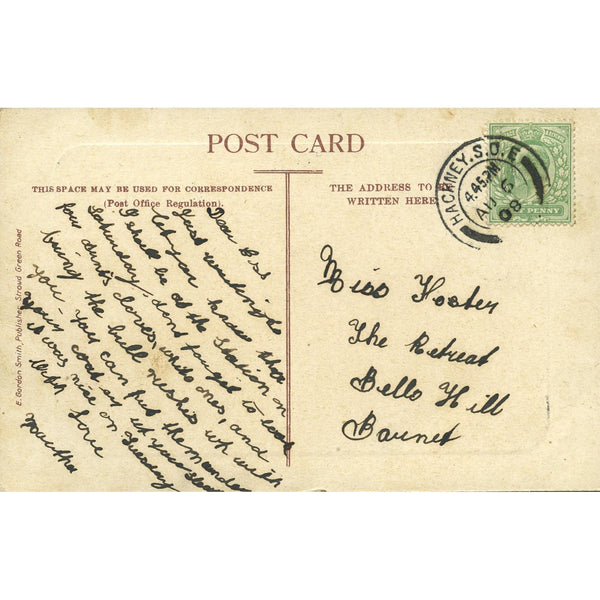 POST CARD
THIS SPACE MAY BE USED FOR CORRESPONDENCE
(Post Office Regulation).
THE ADDRESS TO
WRITTEN HERE
HACKNEY.S.O.E
4.45PM
AU 6
08
PENNY
E. Gordon Smith, Publisher, Stroud Green Road
Dear
Just writing to
let you know that
I shall be at the Station on
Saturday, dont forget to
four aunts gloves, white ones, and
bring the bull rushes with
you. You can put the
your coat as it
it was nice on Thursday
With Love
Miss Foster
The Retreat
Bells Hill
Barnet